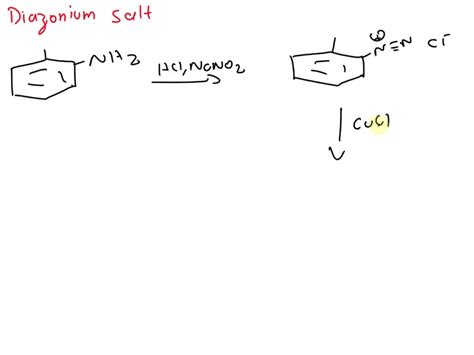 Diazonium salt
NH2
HCl, NaNO2
⊕
N≡N Cl-
CuCl